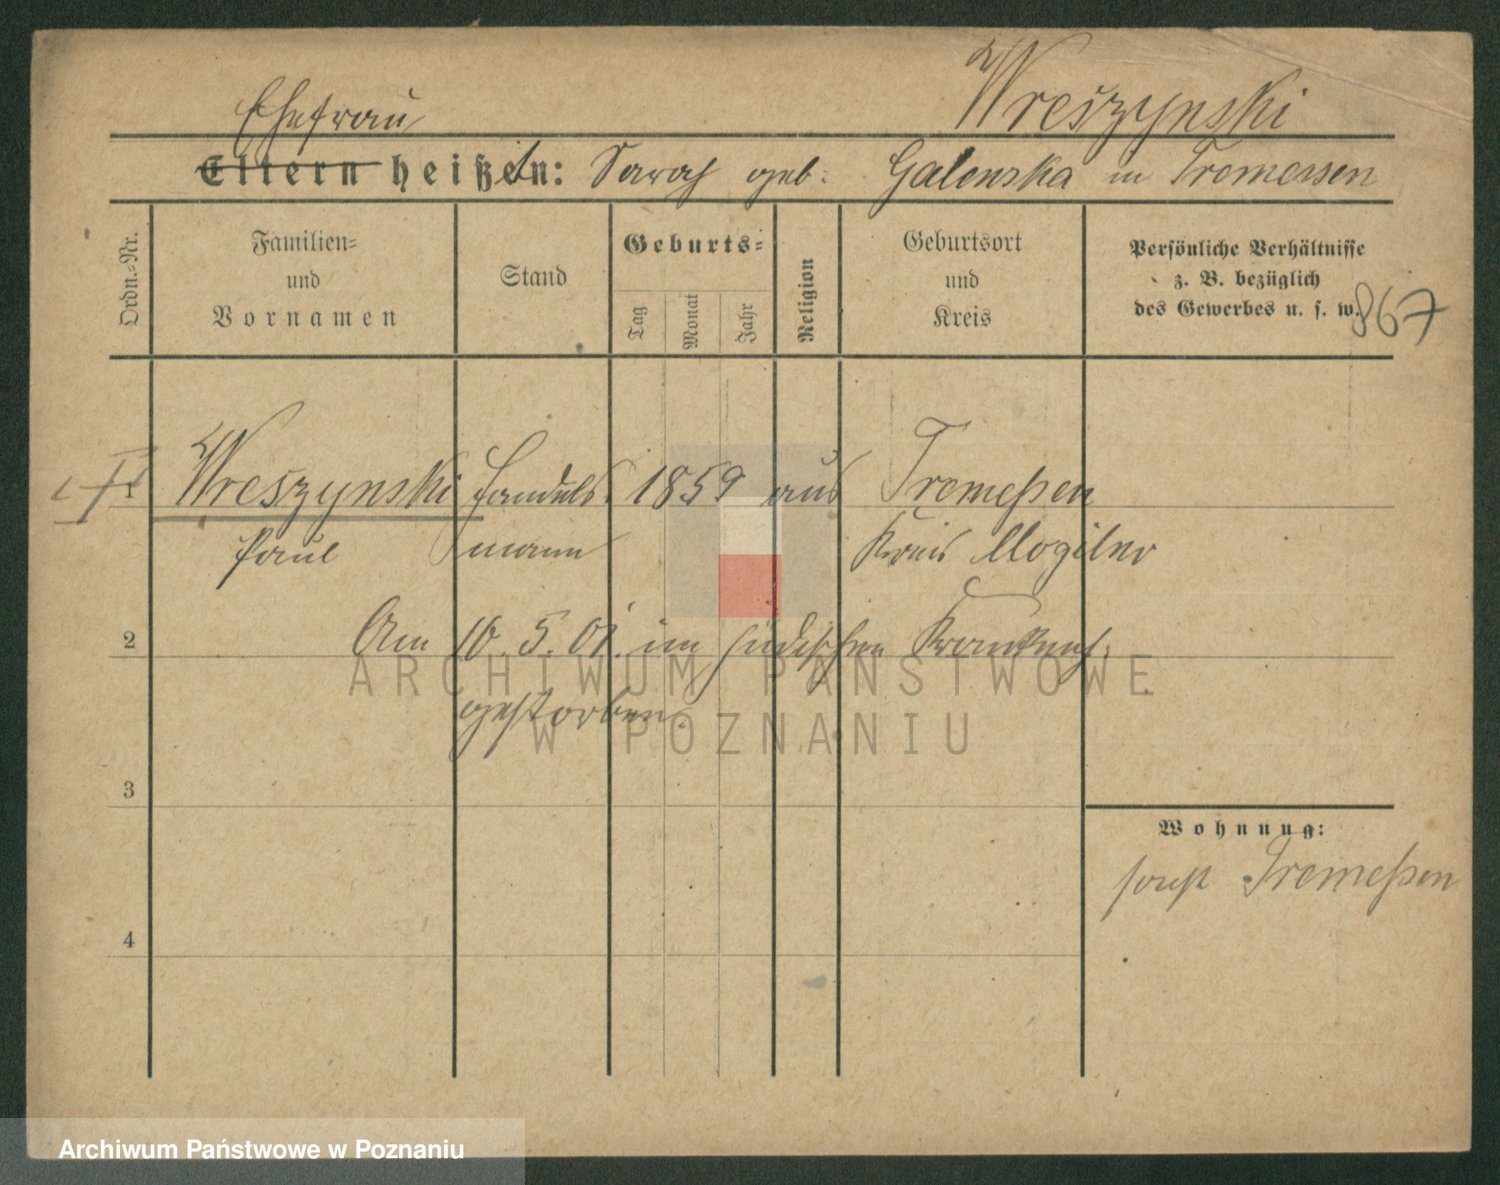 Wreszynski
Ehefrau
Eltern heißen: Sarah geb. Galewska in Tremessen
Ordn.-Nr.
Familien-
und
Vornamen
Stand
Geburts-
Tag
Monat
Jahr
Religion
Geburtsort
und
Kreis
Persönliche Verhältnisse
z. B. bezüglich
des Gewerbes u. s. w.
867
1 Wreszynski Handels- 1859 aus Tremeßen
Paul mann Kreis Mogilno
2 Am 16. 5. 01. im jüdischen Krankenh.
gestorben.
3
4
Wohnung:
sonst Tremeßen
ARCHIWUM PAŃSTWOWE
W POZNANIU
Archiwum Państwowe w Poznaniu